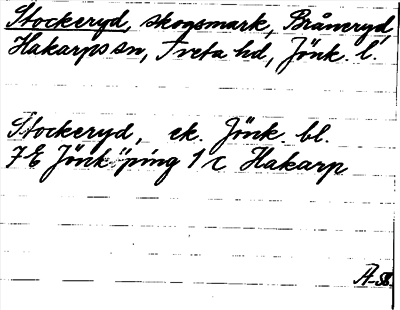 Stockeryd, skogsmark, Bråneryd,
Hakarps sn, Tveta hd, Jönk. l.
Stockeryd, ek. Jönk bl.
7E Jönköping 1c Hakarp
A-58.